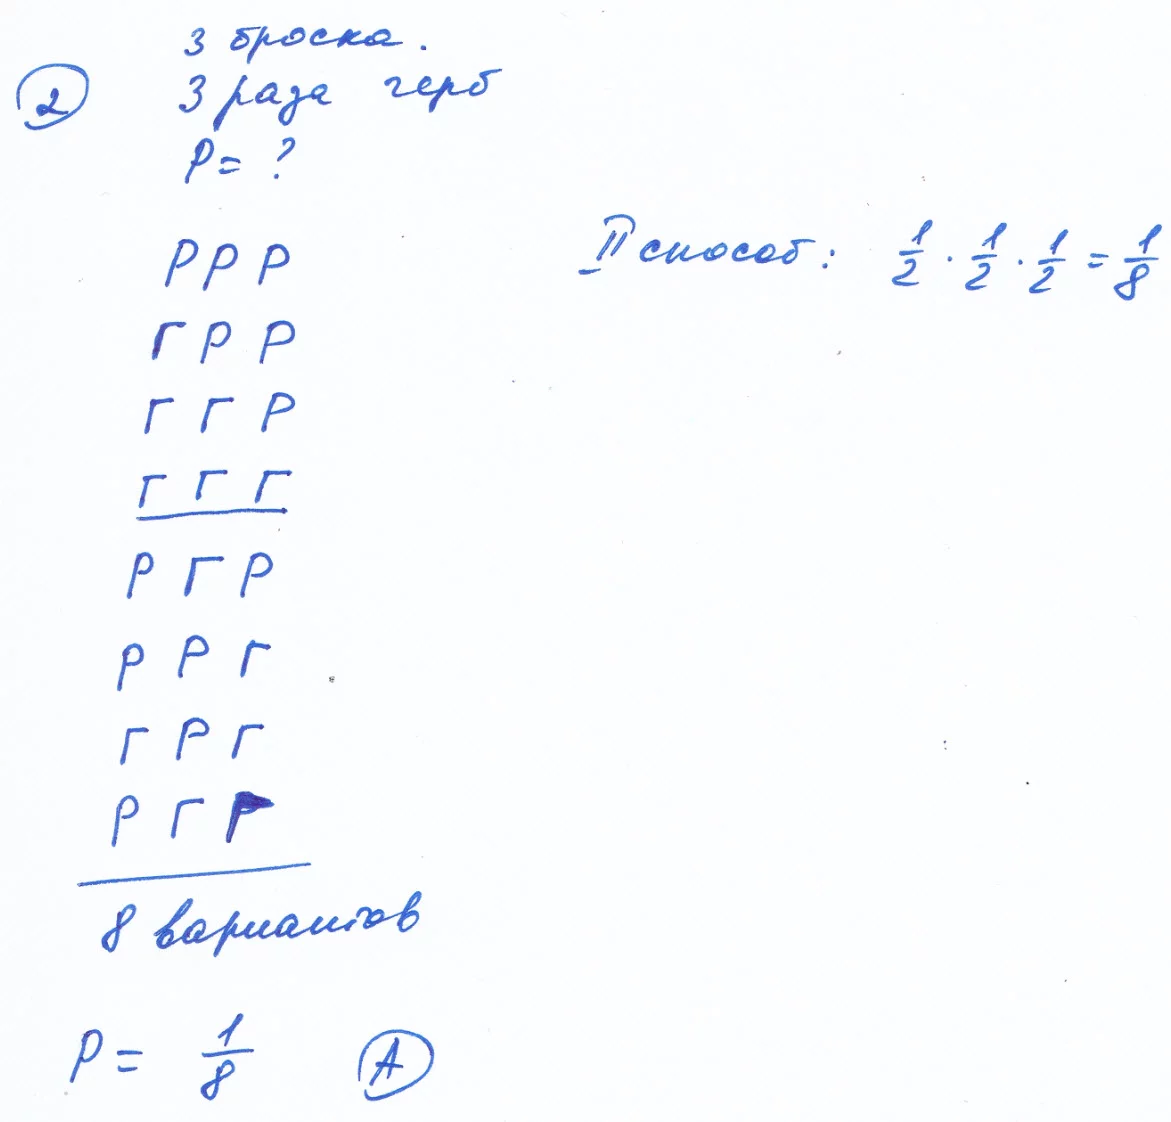 3 броска.
2 3 раза герб
P = ?
Р Р Р
II способ: 1/2 · 1/2 · 1/2 = 1/8
Г Р Р
Г Г Р
Г Г Г
Р Г Р
Р Р Г
Г Р Г
Р Г Г
8 вариантов
P = 1/8 А